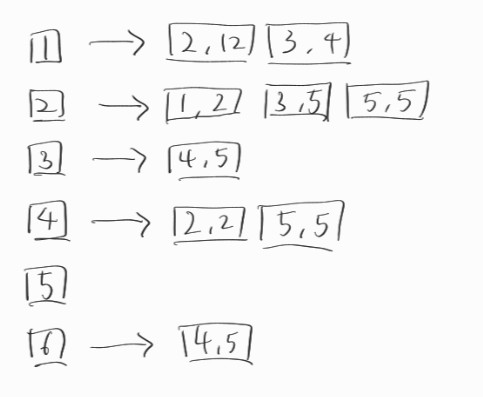 1 → 2,12 3,4
2 → 1,2 3,5 5,5
3 → 4,5
4 → 2,2 5,5
5
6 → 4,5